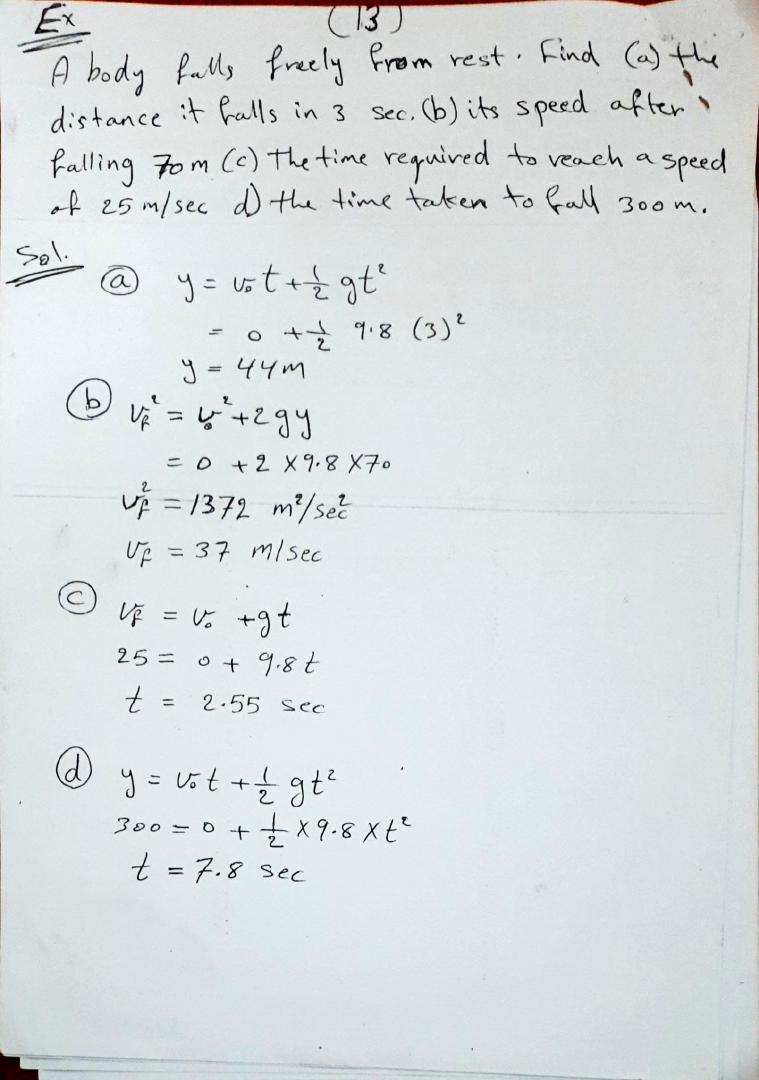 Ex (13)
A body falls freely from rest. Find (a) the
distance it falls in 3 sec. (b) its speed after
falling 70 m (c) the time required to reach a speed
of 25 m/sec d) the time taken to fall 300 m.
Sol.
ⓐ y = v₀t + ½ gt²
= 0 + ½ 9.8 (3)²
y = 44m
ⓑ v_f² = v₀² + 2gy
= 0 + 2 × 9.8 × 70
v_f² = 1372 m²/sec²
v_f = 37 m/sec
ⓒ v_f = v₀ + gt
25 = 0 + 9.8t
t = 2.55 sec
ⓓ y = v₀t + ½ gt²
300 = 0 + ½ × 9.8 × t²
t = 7.8 sec